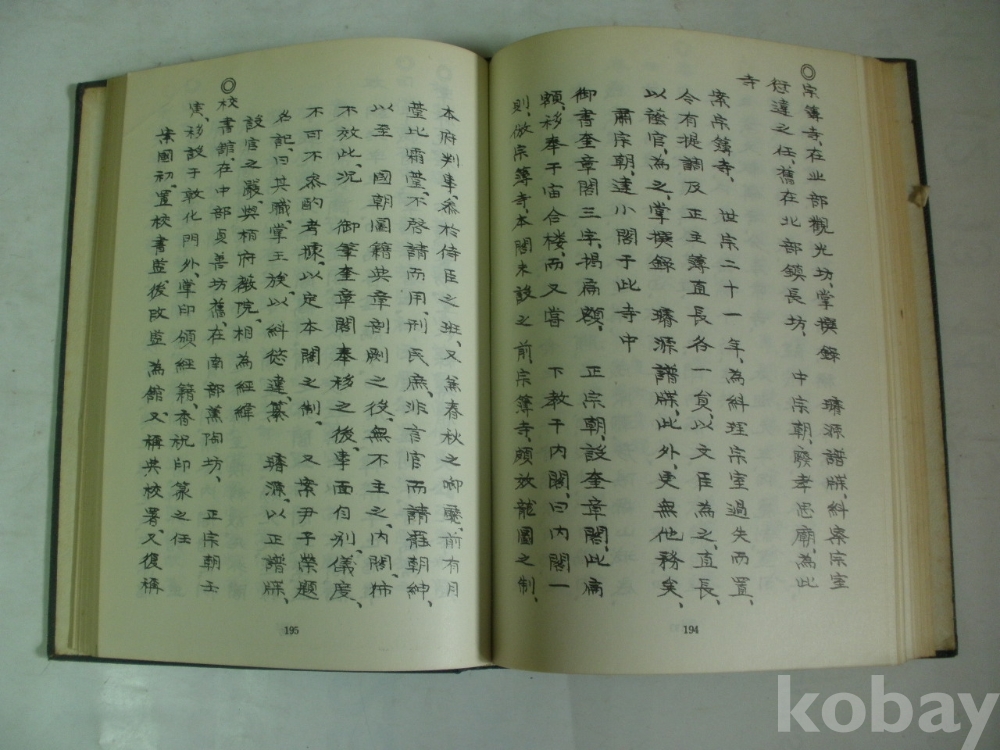 宗簿寺、在北部觀光坊、掌撰錄　璿源譜牒、糾察宗室
愆違之任、舊在北部鎮長坊、　中宗朝、廢孝思廟、為此
寺
案宗簿寺、　世宗二十一年、為糾理宗室過失而置、
令有提調及正主簿直長各一員、以文臣為之、直長、
以蔭官、為之、掌撰錄　璿源譜牒、此外、更無他務矣、
肅宗朝、建小閣于此寺中
御書奎章閣三字、揭扁額、　正宗朝、設奎章閣、此扁
額、移奉于宙合樓、而又嘗　下敎于內閣、曰內閣一
則、倣宗簿寺、本閣未設之前、宗簿寺、頗放龍圖之制、
194
本府判事、忝於侍臣之班、又兼春秋之啣、 前有月
瑩比霜瑩、不啓請而用、刑民庶、非言官而請 朝紳、
以至　國朝圖籍典章剞劂之役、無不主之、內閣、
不效此、況　御筆奎章閣奉移之後、事面自別、儀度、
不可不參酌考據、以定本閣之制、又案尹子榮題
名記、曰其職、掌王族以糾愆違、纂　璿源、以正譜牒、
設官之嚴、與栢府薇院、相為經緯
校書館、在中部貞善坊、舊在南部薰陶坊、　正宗朝壬
寅、移設于敦化門外、掌印頒經籍香祝印篆之任
案國初、置校書監後改監為館、又稱典校署、又復稱
195
kobay